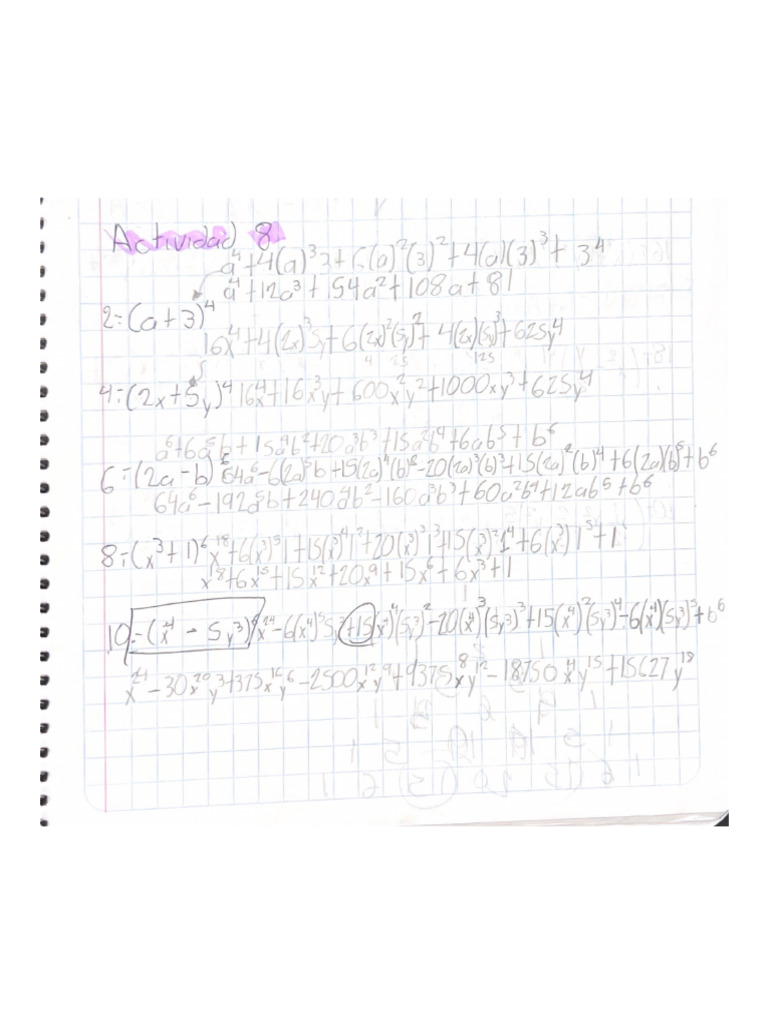 Actividad 8
a⁴+4(a)³3+6(a)²(3)²+4(a)(3)³+3⁴
a⁴+12a³+54a²+108a+81
2=(a+3)⁴
16x⁴+4(2x)³5y+6(2x)²(5y)²+4(2x)(5y)³+625y⁴
4 25 125
4=(2x+5y)⁴ 16x⁴+16x³y+600x²y²+1000xy³+625y⁴
a⁶+6a⁵b+15a⁴b²+20a³b³+15a²b⁴+6ab⁵+b⁶
6=(2a-b)⁶ 64a⁶-6(2a)⁵b+15(2a)⁴(b)²-20(2a)³(b)³+15(2a)²(b)⁴+6(2a)(b)⁵+b⁶
64a⁶-192a⁵b+240a⁴b²-160a³b³+60a²b⁴+12ab⁵+b⁶
8=(x³+1)⁶ x¹⁸+6(x³)⁵1+15(x³)⁴1²+20(x³)³1³+15(x³)²1⁴+6(x³)1⁵+1
x¹⁸+6x¹⁵+15x¹²+20x⁹+15x⁶+6x³+1
10=(x⁴-5y³)⁶ x²⁴-6(x⁴)⁵5y³+15(x⁴)⁴(5y³)²-20(x⁴)³(5y³)³+15(x⁴)²(5y³)⁴-6(x⁴)(5y³)⁵+b⁶
x²⁴-30x²⁰y³+375x¹⁶y⁶-2500x¹²y⁹+9375x⁸y¹²-18750x⁴y¹⁵+15627y¹⁸